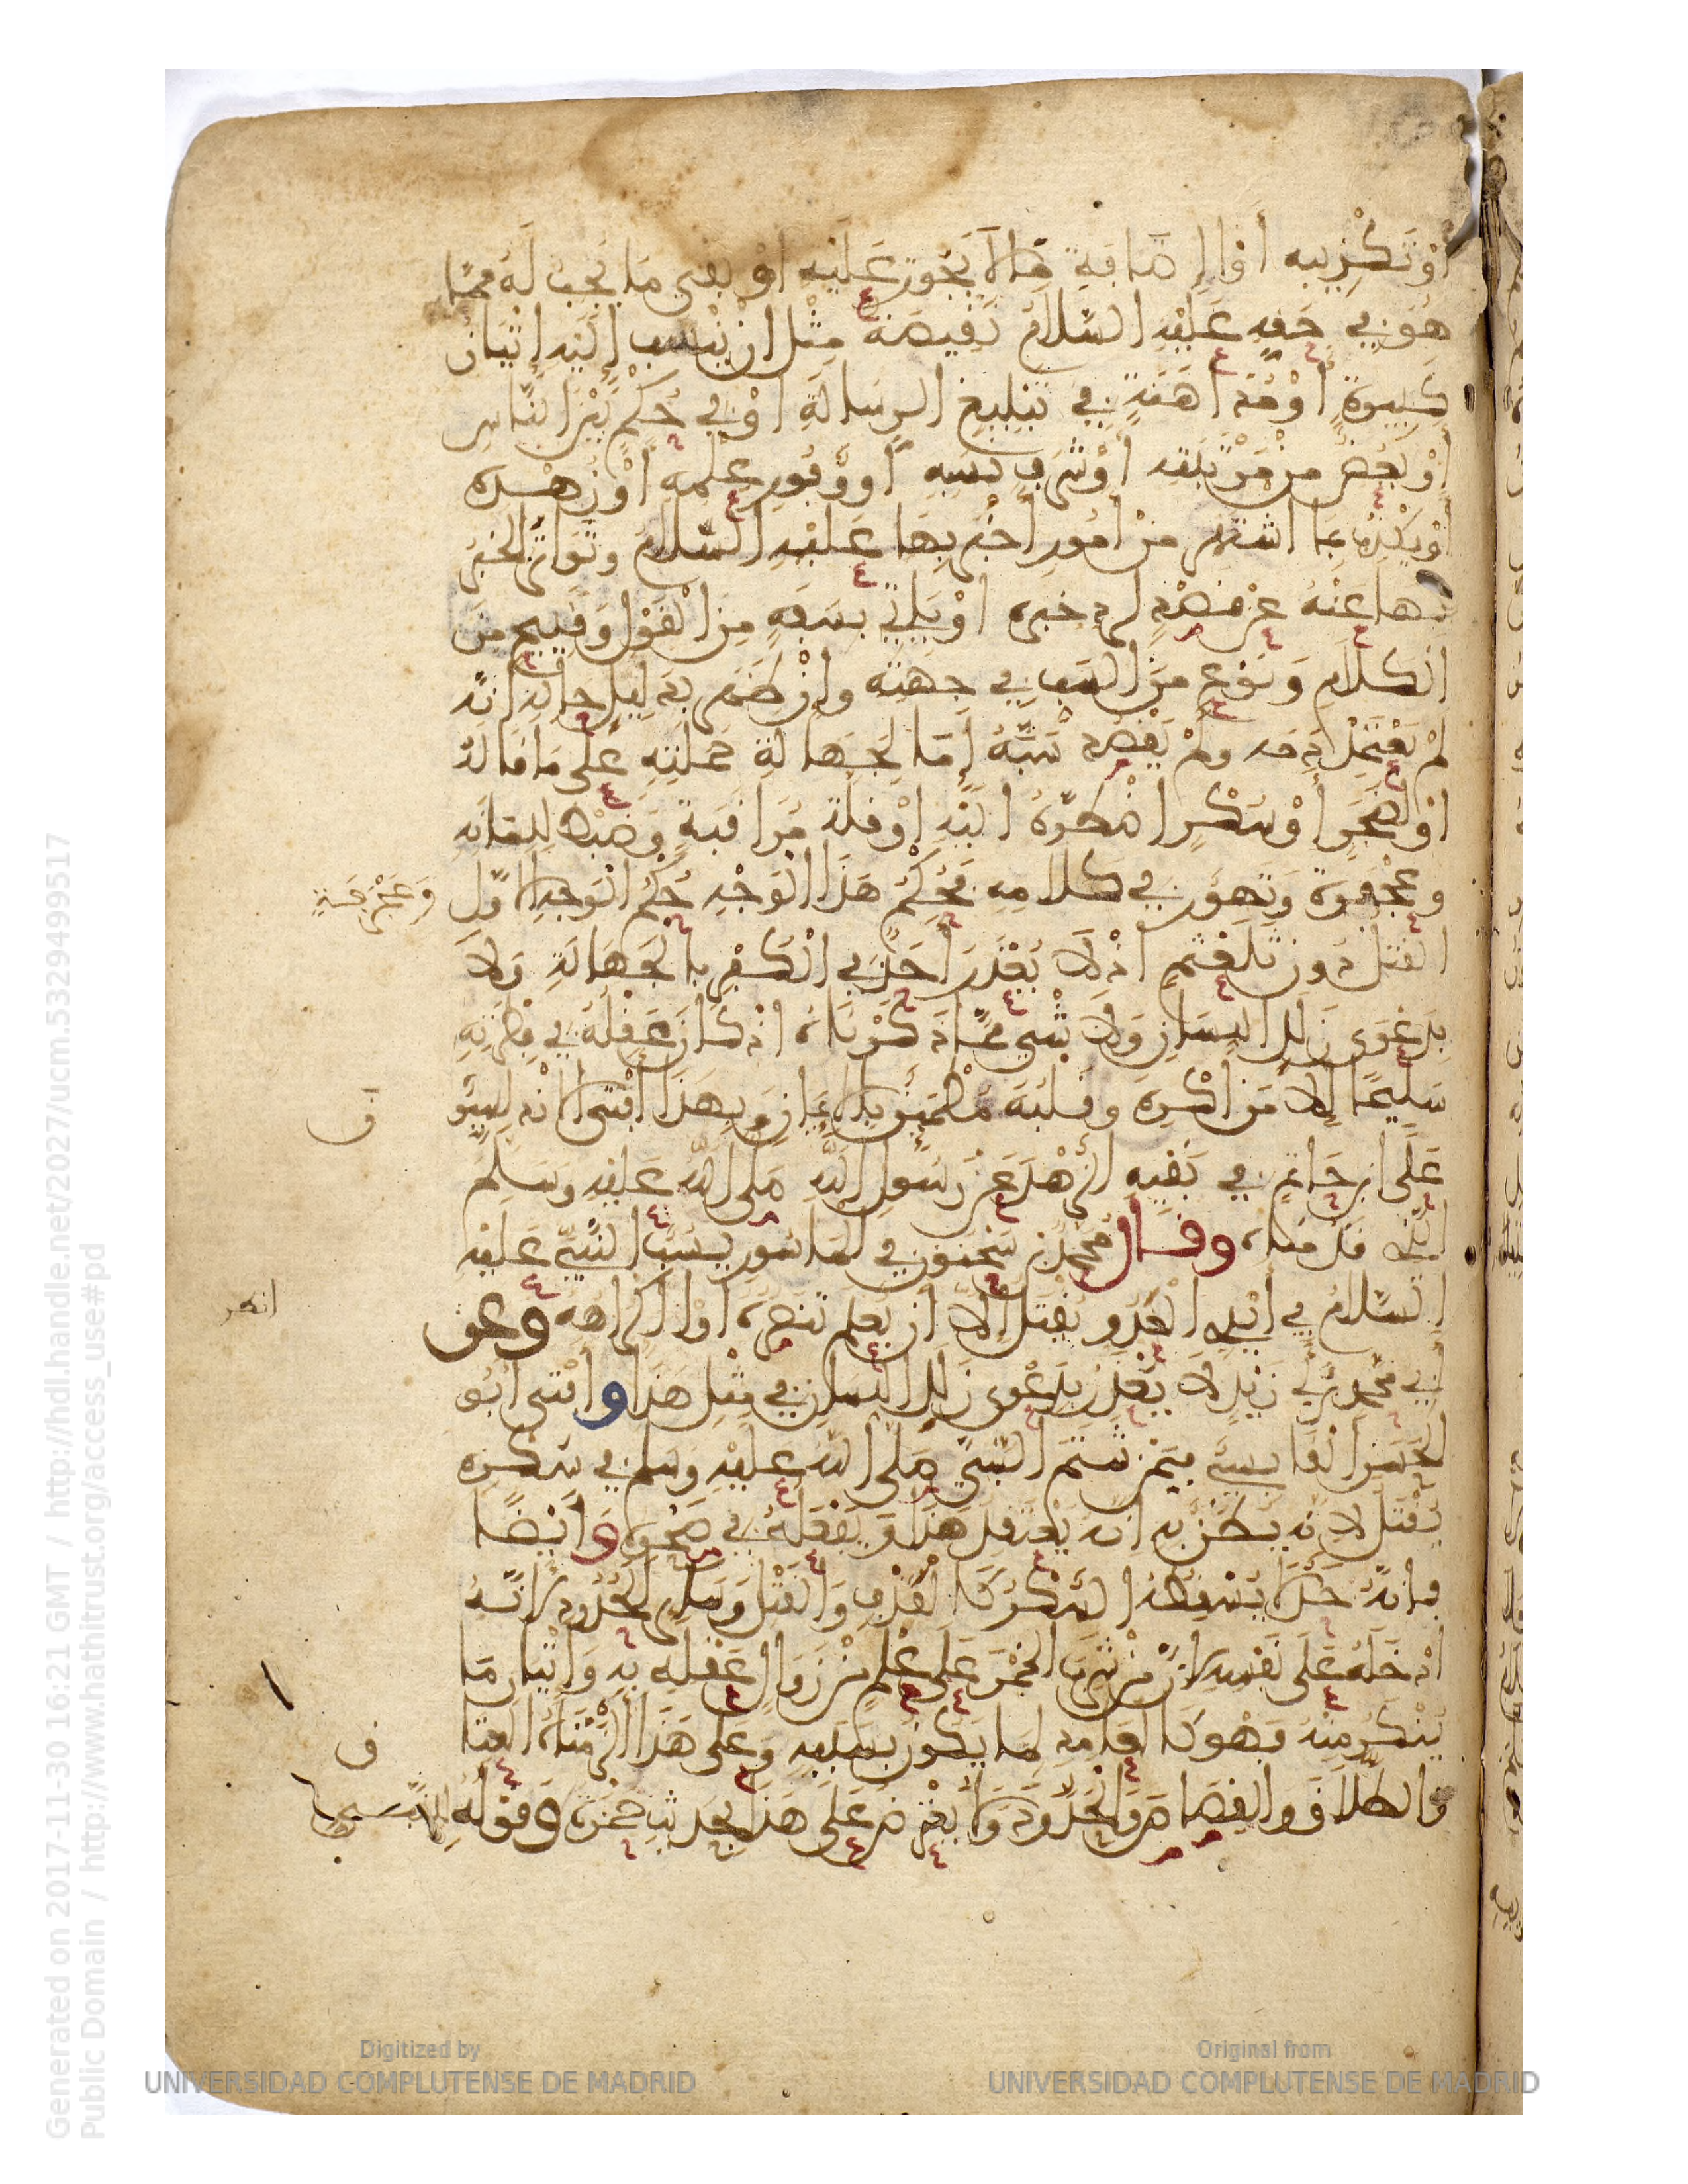 أوْ تَكْذِيبِه أو إضافَة مَا لا يَجُوز عَلَيْه أوْ نَفْيِ مَا يَجِبُ لَهُ مِمَّا
هُوَ فِي حَقِّهِ عَلَيْهِ السَّلامُ نَقِيصَةٌ مِثْل ان يَنْسب إلَيْهِ إتْيَان
كَبِيرَةٍ أوْ مُدَاهَنَةٍ فِي تَبْلِيغ الرِسَالَةِ اوْ فِي حُكْمٍ بَيْنَ النَّاسِ
أوْ يَغُضَّ مِنْ مَرْتَبَتِه أوْ شَرَفِ نَسَبِهِ أو وُفُورِ عِلْمِهِ أوْ زُهْدِه
أوْ يُكَذِّبَ بِمَا اشْتَهَر مِنْ أمُورٍ أخْبَر بِهَا عَلَيْهِ السَّلَامُ وتَوَاتَر الخَبَر
بها عَنْهُ عَنْ قَصْدٍ لرد خبره اوْ يَأتِيَ بسَفَهٍ مِنَ الْقَوْلِ وَقَبِيحٍ مِنَ
الكلامِ وَنَوْعٍ مِنَ السَّبِ فِي جهته وإنْ ظَهَرَ بِدَلِيلِ حالِهِ انَّه
لمْ يَتعَمَّدْ ذمه ولمْ يَقْصِد سَبَّهُ إمّا لِجَهالَةٍ حملتهِ عَلَى مَا قَالَهُ
اوْ لضَجَرٍ أوْ سُكْرٍ اضْطَرَّهُ الَيْهِ اوْ قلة مُرَاقَبَةٍ وَضَبْط لِلِسَانِه
وعَجْرَفَة وَتَهَوّر فِي كلامِهِ فَحُكْمُ هَذَا الْوَجْهِ حُكْمُ الْوَجْهِ الأوَّلِ
وَعَجْرَفَةٍ
القَتْل دُون تَلَعْثُم اذْ لَا يُعْذَر أحَدٌ فِي الْكُفْرِ بِالْجَهَالَةِ وَلَا
بِدَعْوَى زَلَلِ اللِسَانِ وَلَا بشَيْءٍ مِمَّا ذَكَرْنَاهُ اذْ كانَ عَقْلُهُ فِي فِطْرَتِهِ
سَلِيمًا إلَّا مَنْ اُكْرِهَ وقَلْبُهُ مُطْمَئِنّ بِالإيمَانِ وَبِهَذَا أفْتَى الأنْدلُسِيّو
ف
عَلَى ابن حَاتِمٍ فِي نَفْيِهِ الزُهْدَ عَنْ رَسُولِ اللهِ صَلى اللهُ عَلَيْهِ وَسَلمَ
الَّذِي قدَّمْنَاهُ وقال مُحَمَّد بن سَحْنُون فِي المَأسُورِ يَسُبّ النَّبِيَّ عَلَيْهِ
السَّلَامُ فِي أيْدِي العَدُوِ يُقْتَلُ إلَّا أن يُعْلم تَنَصُّرُه أوْ إكْرَاهُهُ وعن
انظر
أبِي مُحَمَّد بن أبِي زَيْدٍ لَا يُعْذَر بِدَعْوَى زَلَلِ اللِسَانِ فِي مِثْلِ هَذَا وأفْتَى أبُو
الحَسَن القَابِسِيّ فِيمَنْ شَتَمَ النَّبِيَّ صَلَّى اللهُ عَلَيْهِ وسلم فِي سُكْرِه
يُقْتَلُ لأنه يُظَنّ به انه يَعْتَقِد هَذَا وَيَفْعَلهُ فِي صَحْوِهِ وَأيْضًا
فإنهُ حَدٌّ لَا يُسْقِطه السُكْرُ كَالقَذْفِ وَالقَتْلِ وَسَائِرِ الحُدُودِ لأنَّهُ
أدْخَلَهُ عَلَى نَفْسِهِ لأنّ مَنْ شَرِبَ الخَمْرَ عَلَى عِلْمٍ مِنْ زَوَالِ عَقْلِهِ بِهِ وَإتْيَان مَا
يُنْكَر مِنْهُ فَهوَ كَالعَامِدِ لِمَا يَكُونُ بِسَبَبِهِ وَعَلَى هَذَا ألزَمْنَاهُ العِتَا
ف
والطَّلَاقَ وَالقِصَاصَ وَالحُدُودَ وَلَا يُعْتَرَض عَلَى هَذَا بِحَدِيثِ حَمْزَةَ وَقَوْلِهِ